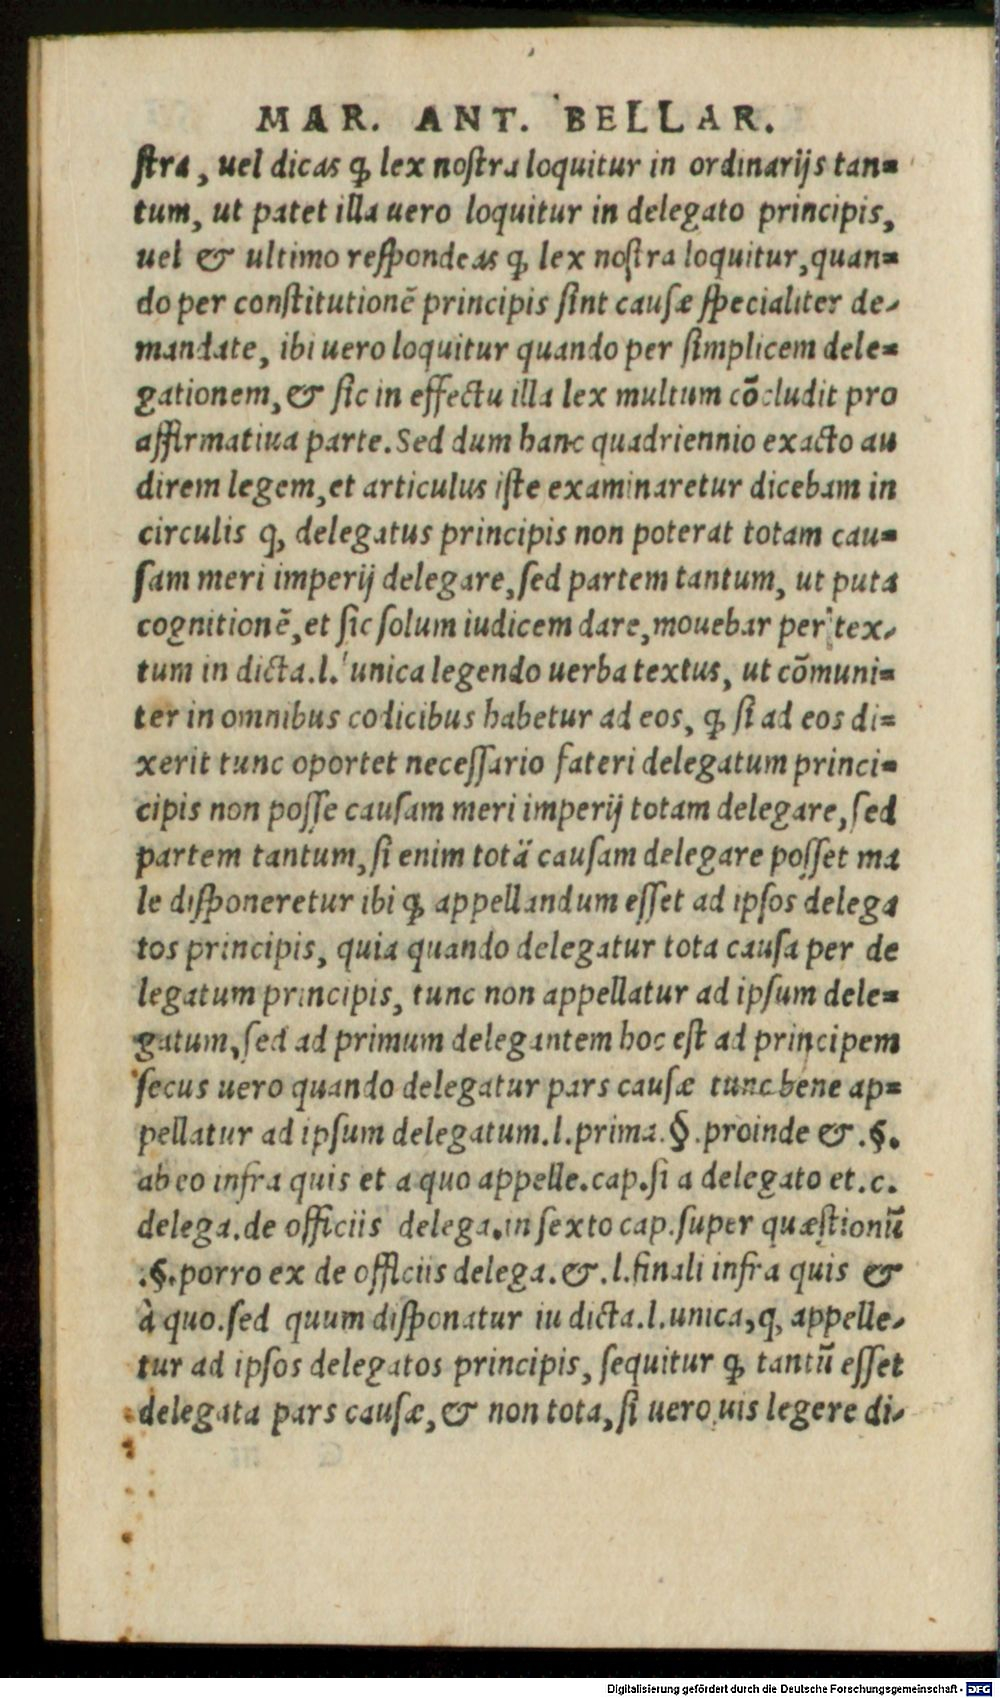 MAR. ANT. BELLAR.
stra, uel dicas ꝙ lex nostra loquitur in ordinarijs tan=
tum, ut patet illa uero loquitur in delegato principis,
uel & ultimo respondeas ꝙ lex nostra loquitur, quan=
do per constitutionē principis sint causæ specialiter de-
mandate, ibi uero loquitur quando per simplicem dele=
gationem, & sic in effectu illa lex multum cōcludit pro
affirmatiua parte. Sed dum hanc quadriennio exacto au
direm legem, et articulus iste examinaretur dicebam in
circulis ꝙ, delegatus principis non poterat totam cau=
sam meri imperij delegare, sed partem tantum, ut puta
cognitionē, et sic solum iudicem dare, mouebar per tex-
tum in dicta.l. unica legendo uerba textus, ut cōmuni=
ter in omnibus codicibus habetur ad eos, ꝙ si ad eos di=
xerit tunc oportet necessario fateri delegatum princi=
cipis non posse causam meri imperij totam delegare, sed
partem tantum, si enim totā causam delegare posset ma
le disponeretur ibi ꝙ appellandum esset ad ipsos delega
tos principis, quia quando delegatur tota causa per de
legatum principis, tunc non appellatur ad ipsum dele=
gatum, sed ad primum delegantem hoc est ad principem
secus uero quando delegatur pars causæ tunc bene ap=
pellatur ad ipsum delegatum.l.prima.§.proinde &.§.
ab eo infra quis et a quo appelle.cap.si a delegato et.c.
delega.de officiis delega.in sexto cap.super quæstionū
.§.porro ex de officiis delega.&.l.finali infra quis &
à quo.sed quum disponatur iu dicta.l.unica, ꝙ, appelle-
tur ad ipsos delegatos principis, sequitur ꝙ tantū esset
delegata pars causæ, & non tota, si uero uis legere di-
Digitalisierung gefördert durch die Deutsche Forschungsgemeinschaft - DFG